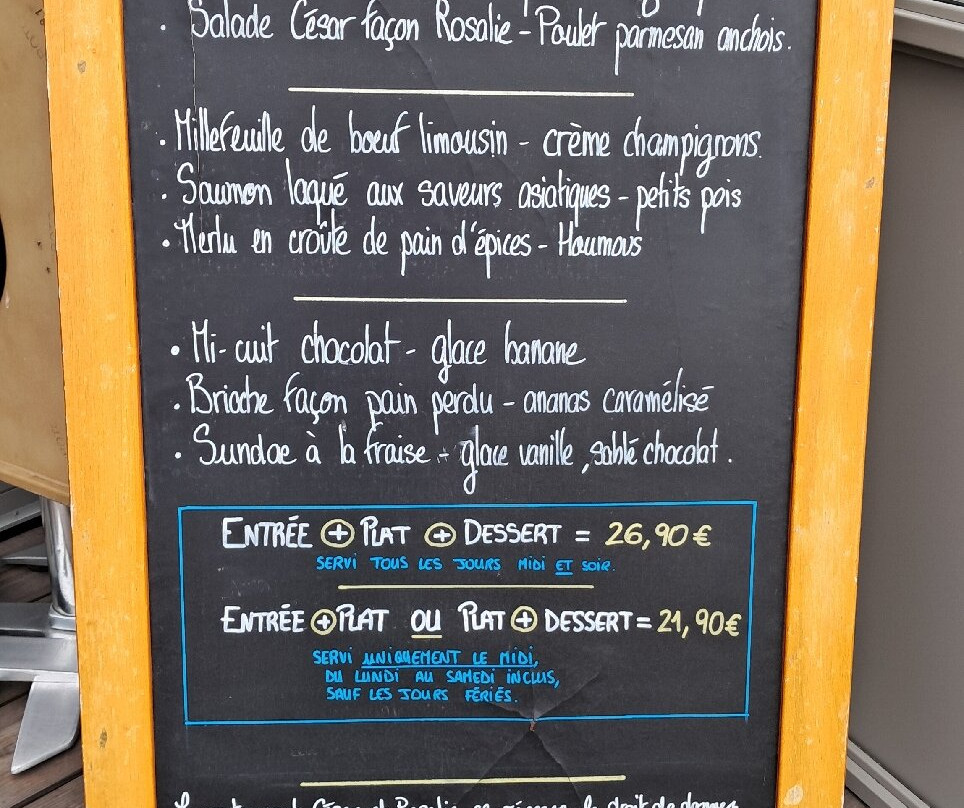 . Salade César façon Rosalie - Poulet parmesan anchois.
. Millefeuille de bœuf limousin - crème champignons.
. Saumon laqué aux saveurs asiatiques - petits pois
. Merlu en croûte de pain d'épices - Houmous
. Mi-cuit chocolat - glace banane
. Brioche façon pain perdu - ananas caramélisé
. Sundae à la fraise - glace vanille, sablé chocolat.
ENTRÉE + PLAT + DESSERT = 26,90 €
SERVI TOUS LES JOURS MIDI ET SOIR.
ENTRÉE + PLAT OU PLAT + DESSERT = 21,90 €
SERVI UNIQUEMENT LE MIDI,
DU LUNDI AU SAMEDI INCLUS,
SAUF LES JOURS FÉRIÉS.
Rosalie se le droit de